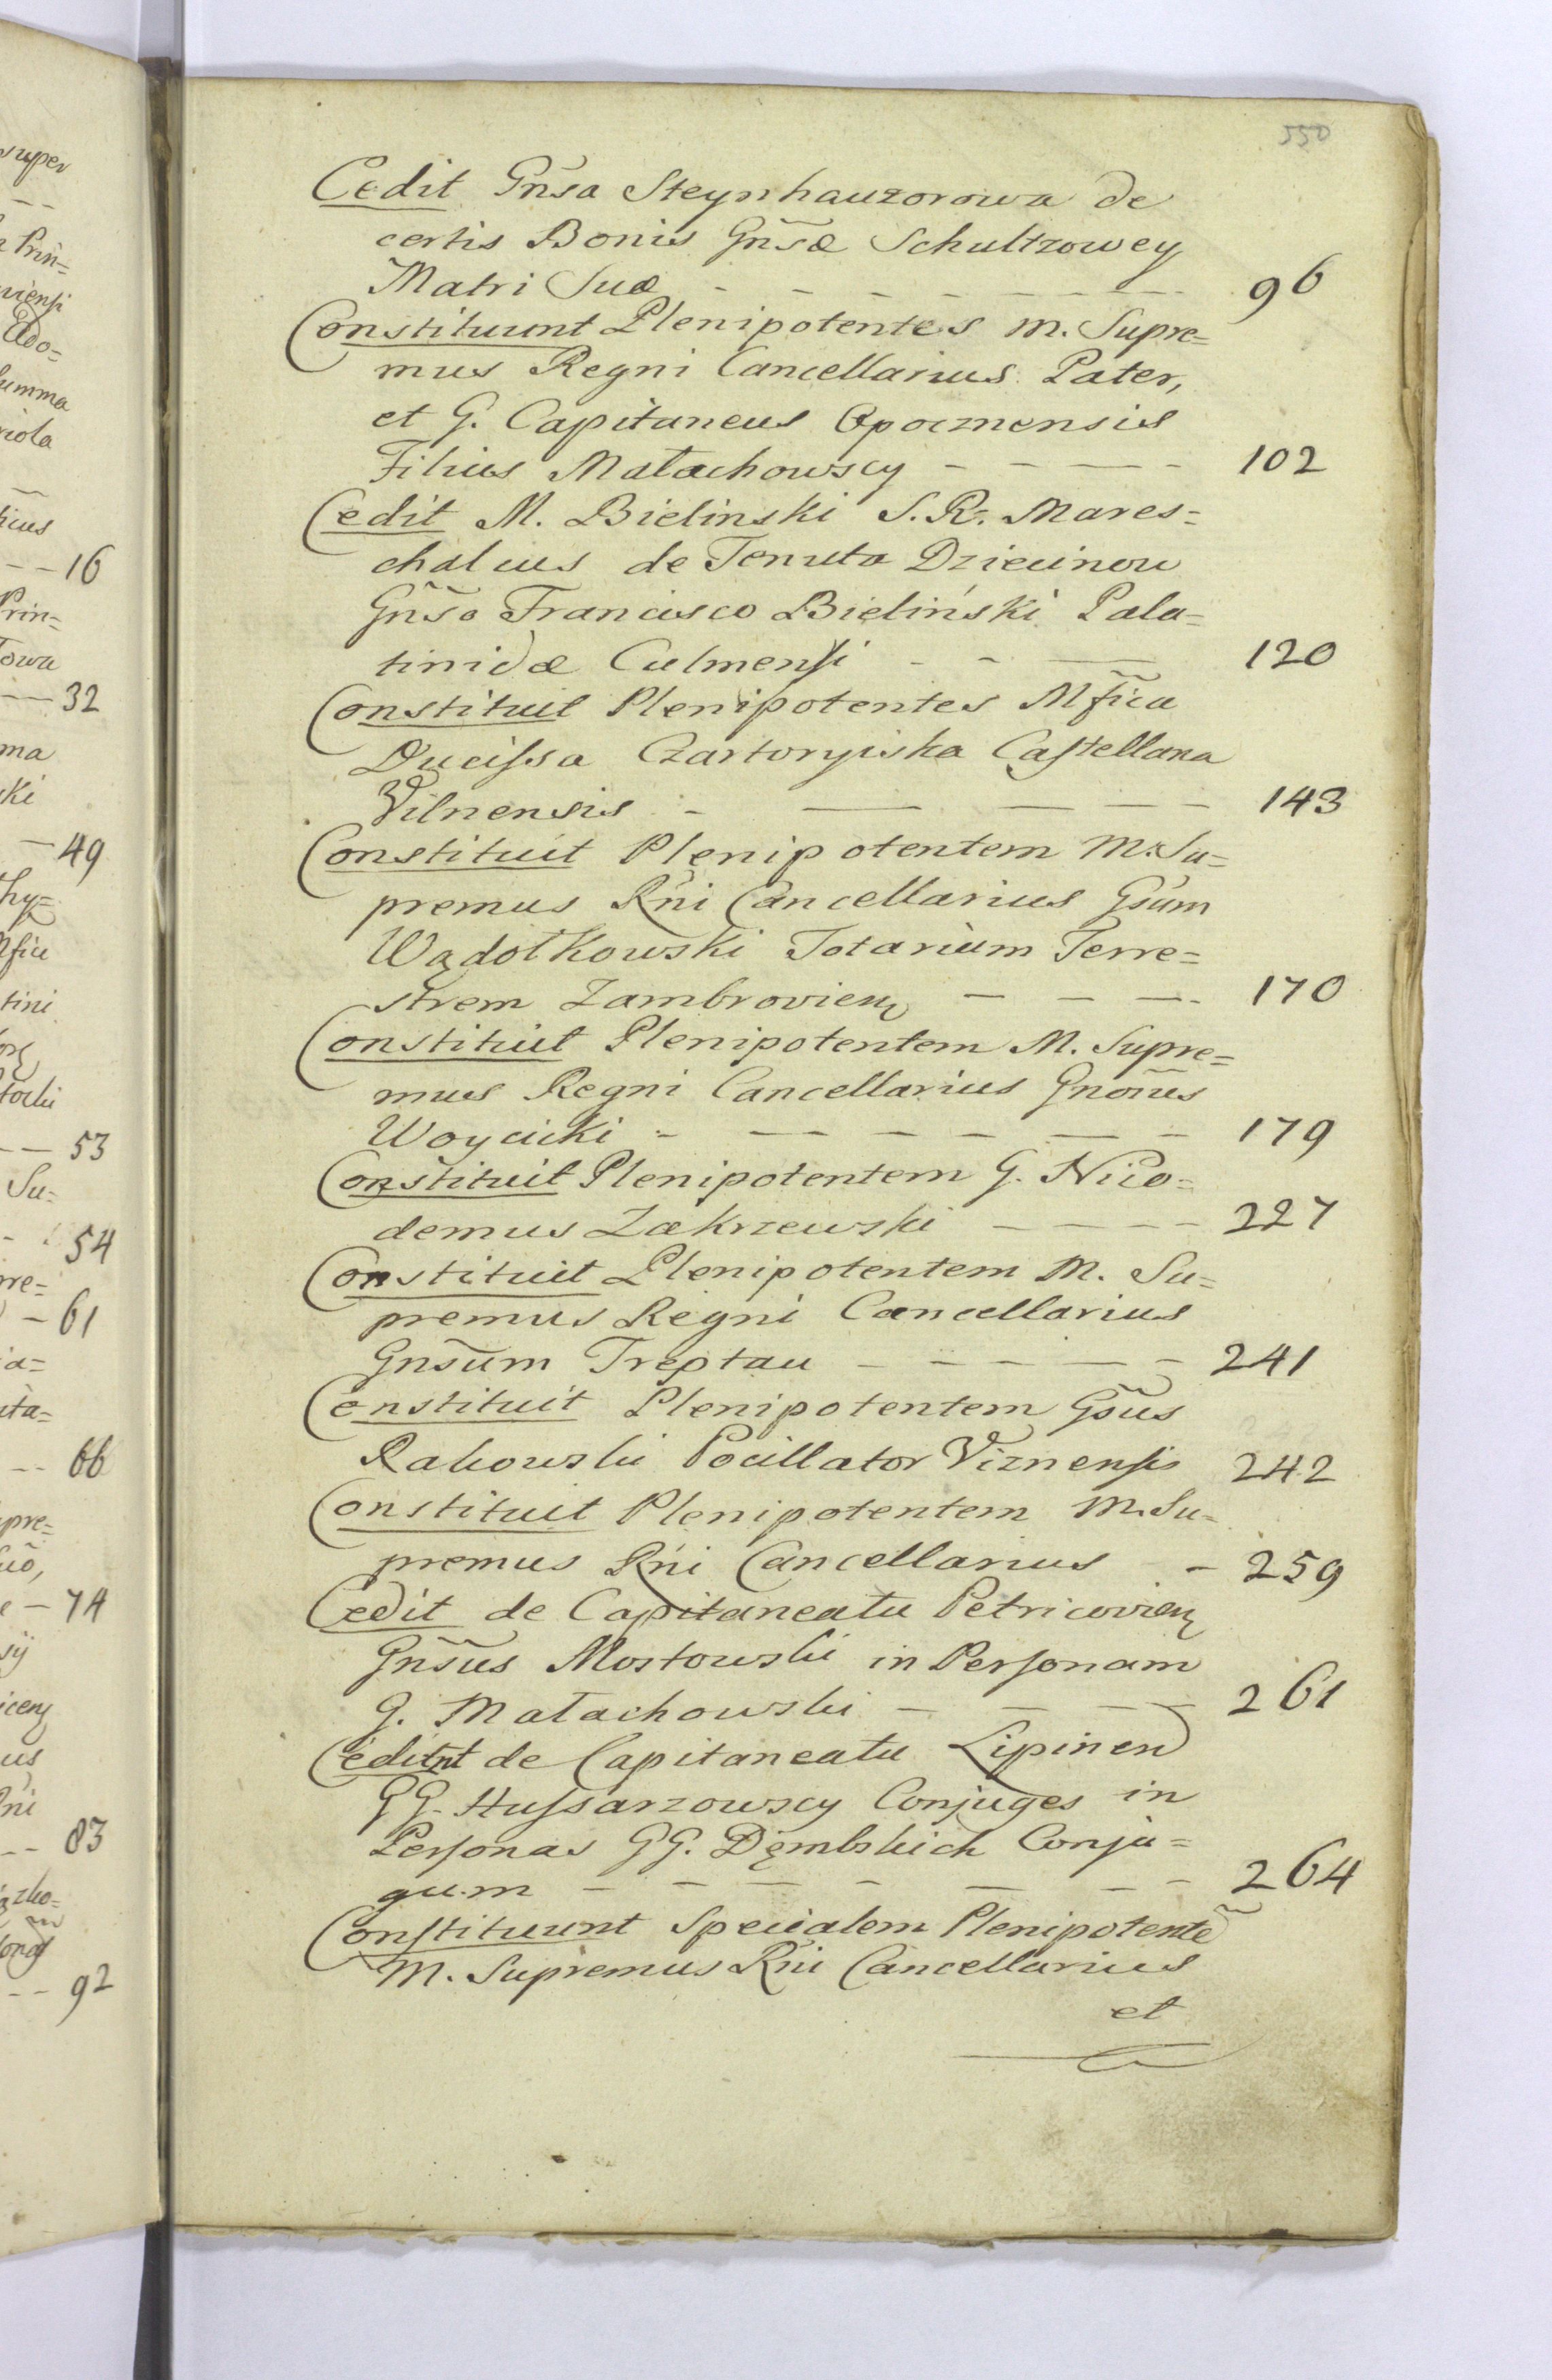 550
Cedit Gñsa Steynhauzorowa de
certis Bonis Gñsæ Schultzowey
Matri Suæ - - - - - - - - 96
Constituunt Plenipotentes M. Supre=
mus Regni Cancellarius Pater,
et G. Capitaneus Opocznensis
Filius Małachowscy - - - - 102
Cedit M. Bielinski S. R. Mares=
chalcus de Tenuta Dziecinow
Gñso Francisco Bieliński Pala=
tinidæ Culmensi - - - 120
Constituit Plenipotentes Mfica
Ducissa Czartoryiska Castellana
Vilnensis - - - - - 143
Constituit Plenipotentem M. Su=
premus Rñi Cancellarius Gsum
Wądołkowski Notarium Terre=
strem Zambrovien - - - 170
Constituit Plenipotentem M. Supre=
mus Regni Cancellarius Gnorus
Woycicki - - - - - - - 179
Constituit Plenipotentem G. Nico=
demus Zakrzewski - - - - 227
Constituit Plenipotentem M. Su=
premus Regni Cancellarius
Gnsum Treptau - - - - - 241
Constituit Plenipotentem Gsus
Rakowski Pocillator Viznensis 242
Constituit Plenipotentem M. Su=
premus Rñi Cancellarius - 259
Cedit de Capitaneatu Petricovien
Gñsus Mostowski in Personam
G. Małachowski - - - - 261
Cedunt de Capitaneatu Lipinen
GG. Hussarzowscy Conjuges in
Personas GG. Dęmbskich Conju=
gum - - - - - - - 264
Constituunt Specialem Plenipotente
M. Supremus Rñi Cancellarius
et
super
Prin=
viensi
Ado=
summa
riola
16
Prin=
owa
32
ma
ski
49
hy=
Mfica
tini
tocki
53
Su=
54
rre=
61
ia=
uta=
66
upre=
74
us
Rñi
83
92